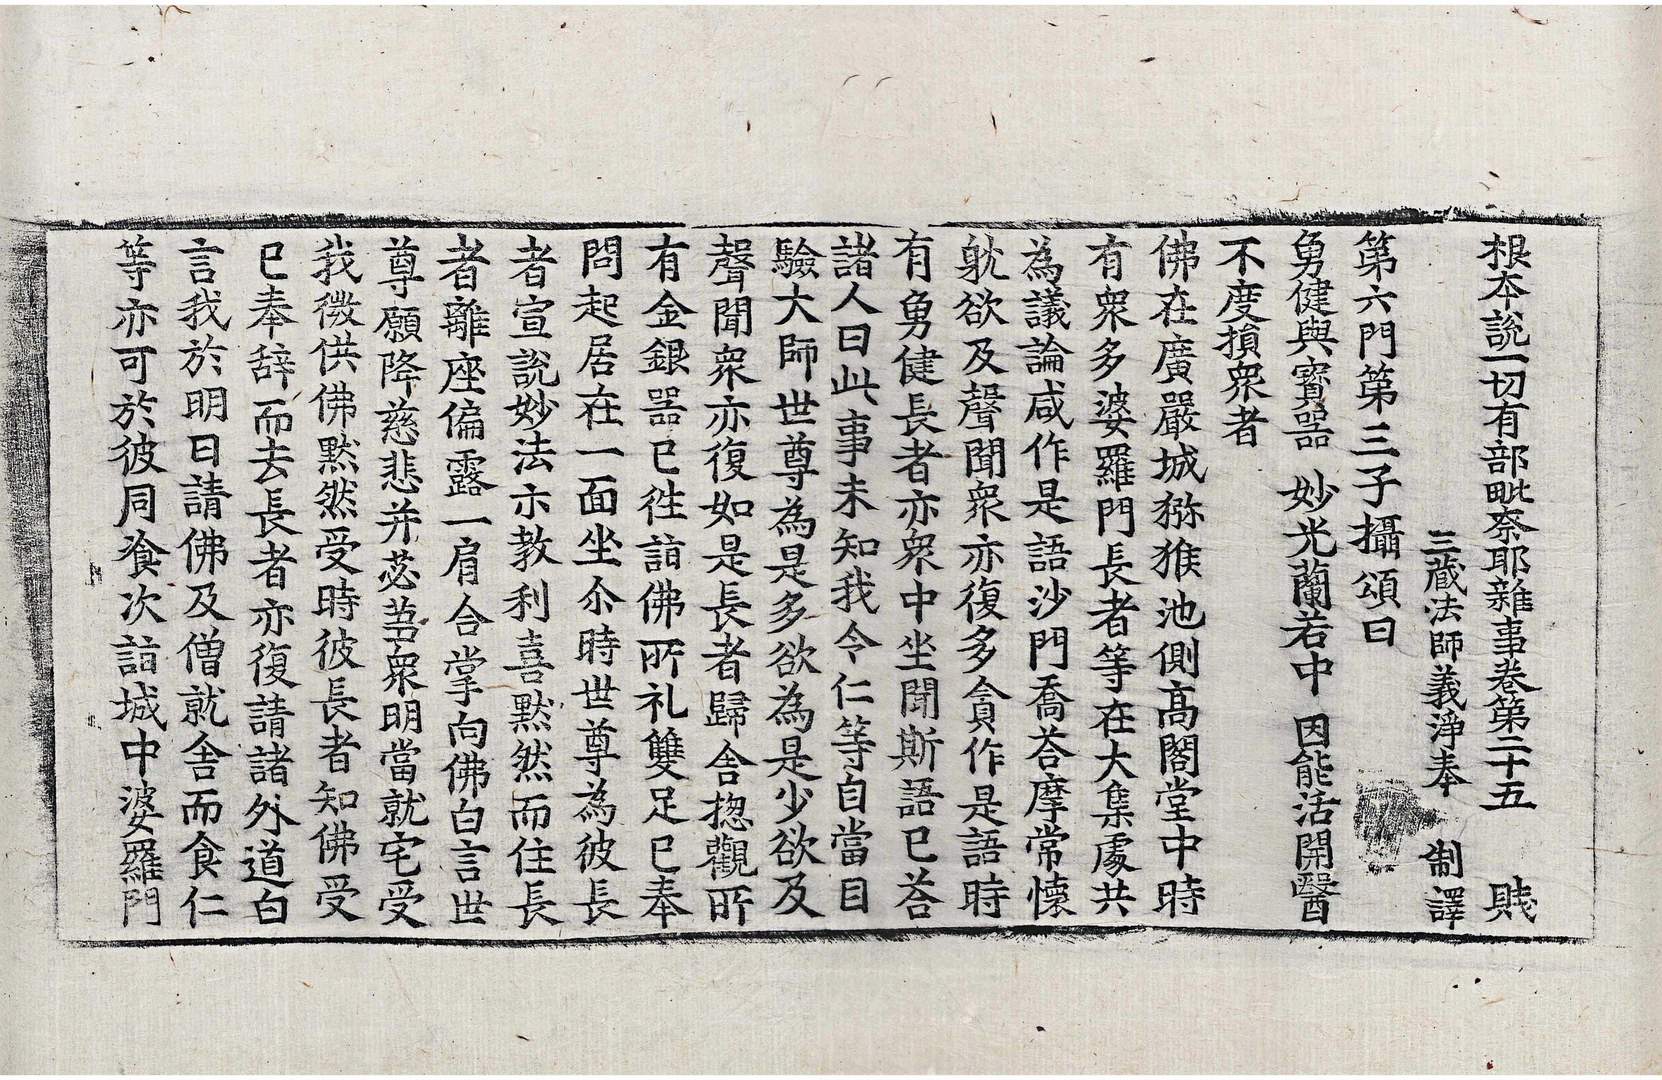 根本說一切有部毗奈耶雜事卷第二十五　賤
三藏法師義淨奉　制譯
第六門第三子攝頌曰
勇健與寳器　妙光蘭若中　因能活開醫
不度損衆者
佛在廣嚴城猕猴池側髙閣堂中時
有衆多婆羅門長者等在大集處共
為議論咸作是語沙門喬荅摩常懷
躭欲及聲聞衆亦復多貪作是語時
有勇健長者亦衆中坐聞斯語已荅
諸人曰此事未知我令仁等自當目
驗大師世尊為是多欲為是少欲及
聲聞衆亦復如是長者歸舍揔觀所
有金銀器已徃詣佛所礼雙足已奉
問起居在一面坐尒時世尊為彼長
者宣說妙法示教利喜黙然而住長
者離座偏露一肩合掌向佛白言世
尊願降慈悲并苾蒭衆明當就宅受
我微供佛黙然受時彼長者知佛受
已奉辞而去長者亦復請諸外道白
言我於明日請佛及僧就舍而食仁
等亦可於彼同飡次詣城中婆羅門